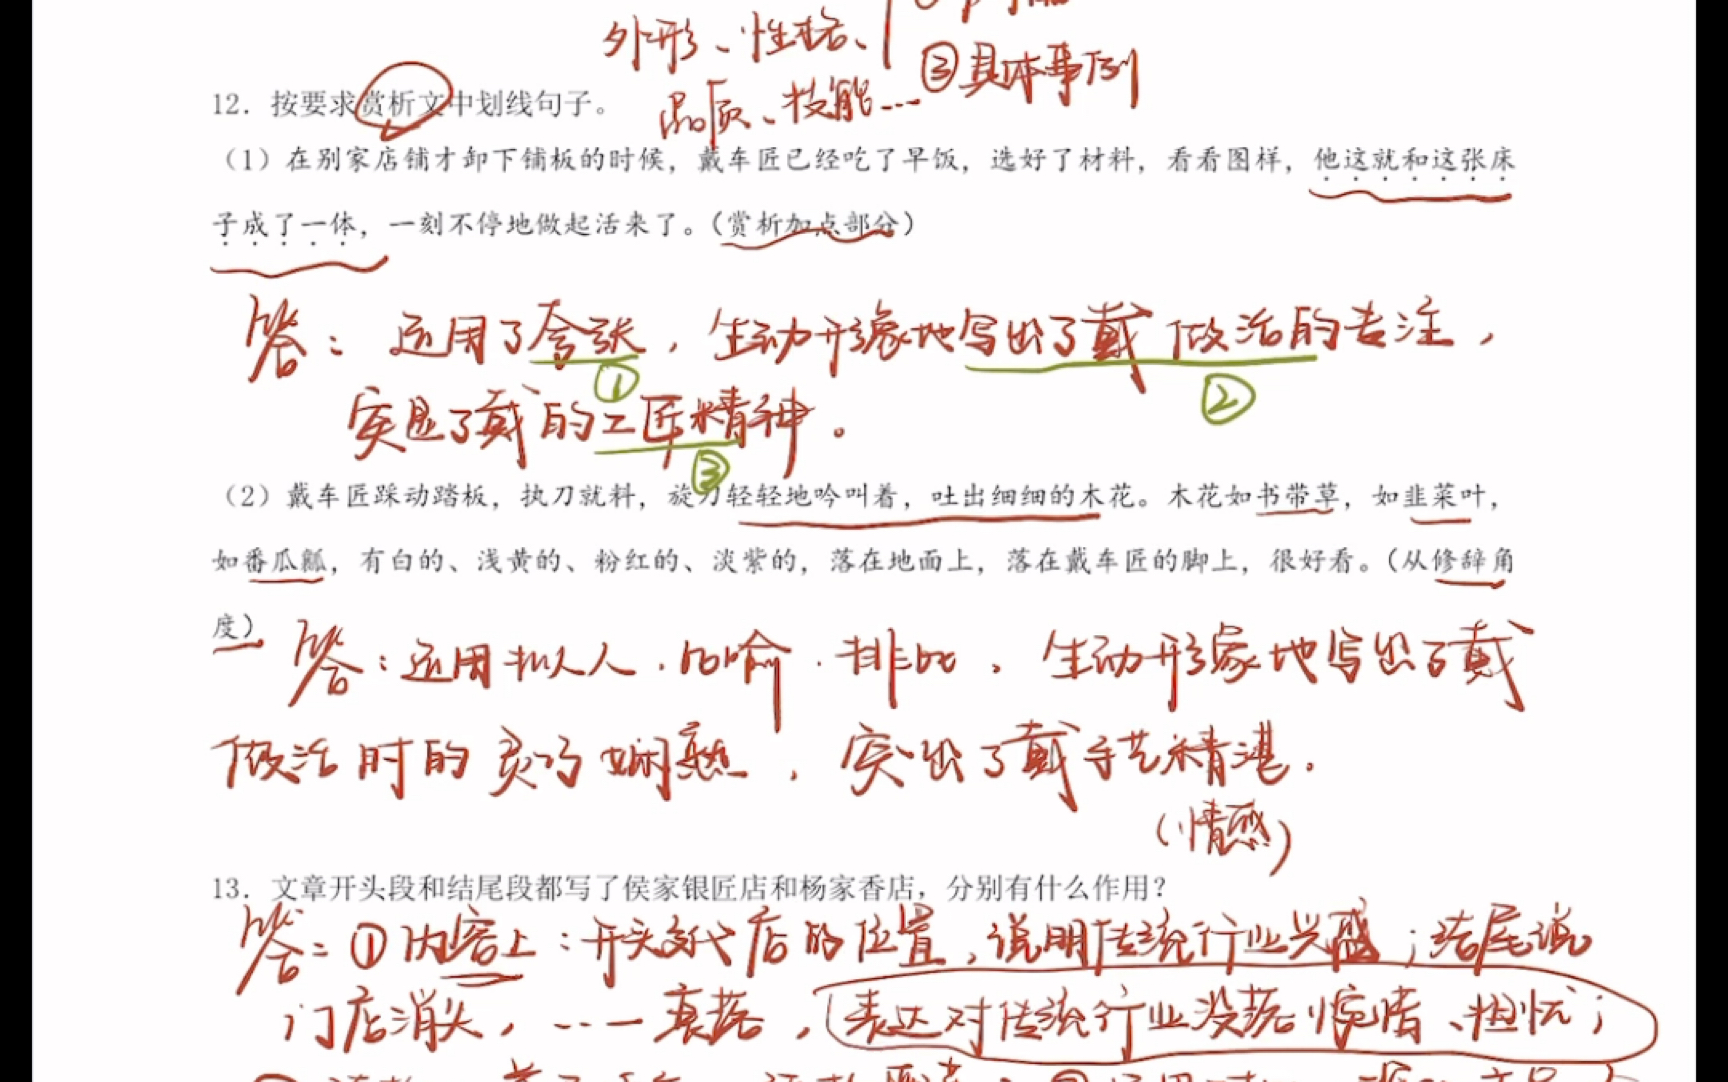 外形、性格、
③具体事例
品质、技能…
12．按要求赏析文中划线句子。
（1）在别家店铺才卸下铺板的时候，戴车匠已经吃了早饭，选好了材料，看看图样，他这就和这张床
子成了一体，一刻不停地做起活来了。（赏析加点部分）
答：运用了夸张，生动形象地写出了戴做活的专注，
① ②
突显了戴的工匠精神。
③
（2）戴车匠踩动踏板，执刀就料，旋刀轻轻地吟叫着，吐出细细的木花。木花如书带草，如韭菜叶，
如番瓜瓤，有白的、浅黄的、粉红的、淡紫的，落在地面上，落在戴车匠的脚上，很好看。（从修辞角
度）
答：运用拟人．比喻．排比，生动形象地写出了戴
做活时的灵巧娴熟，突出了戴手艺精湛．
（情感）
13．文章开头段和结尾段都写了侯家银匠店和杨家香店，分别有什么作用？
答：①内容上：开头交代店的位置，说明传统行业兴盛；结尾说
门店消失，…一衰落，表达对传统行业没落惋惜、担忧；